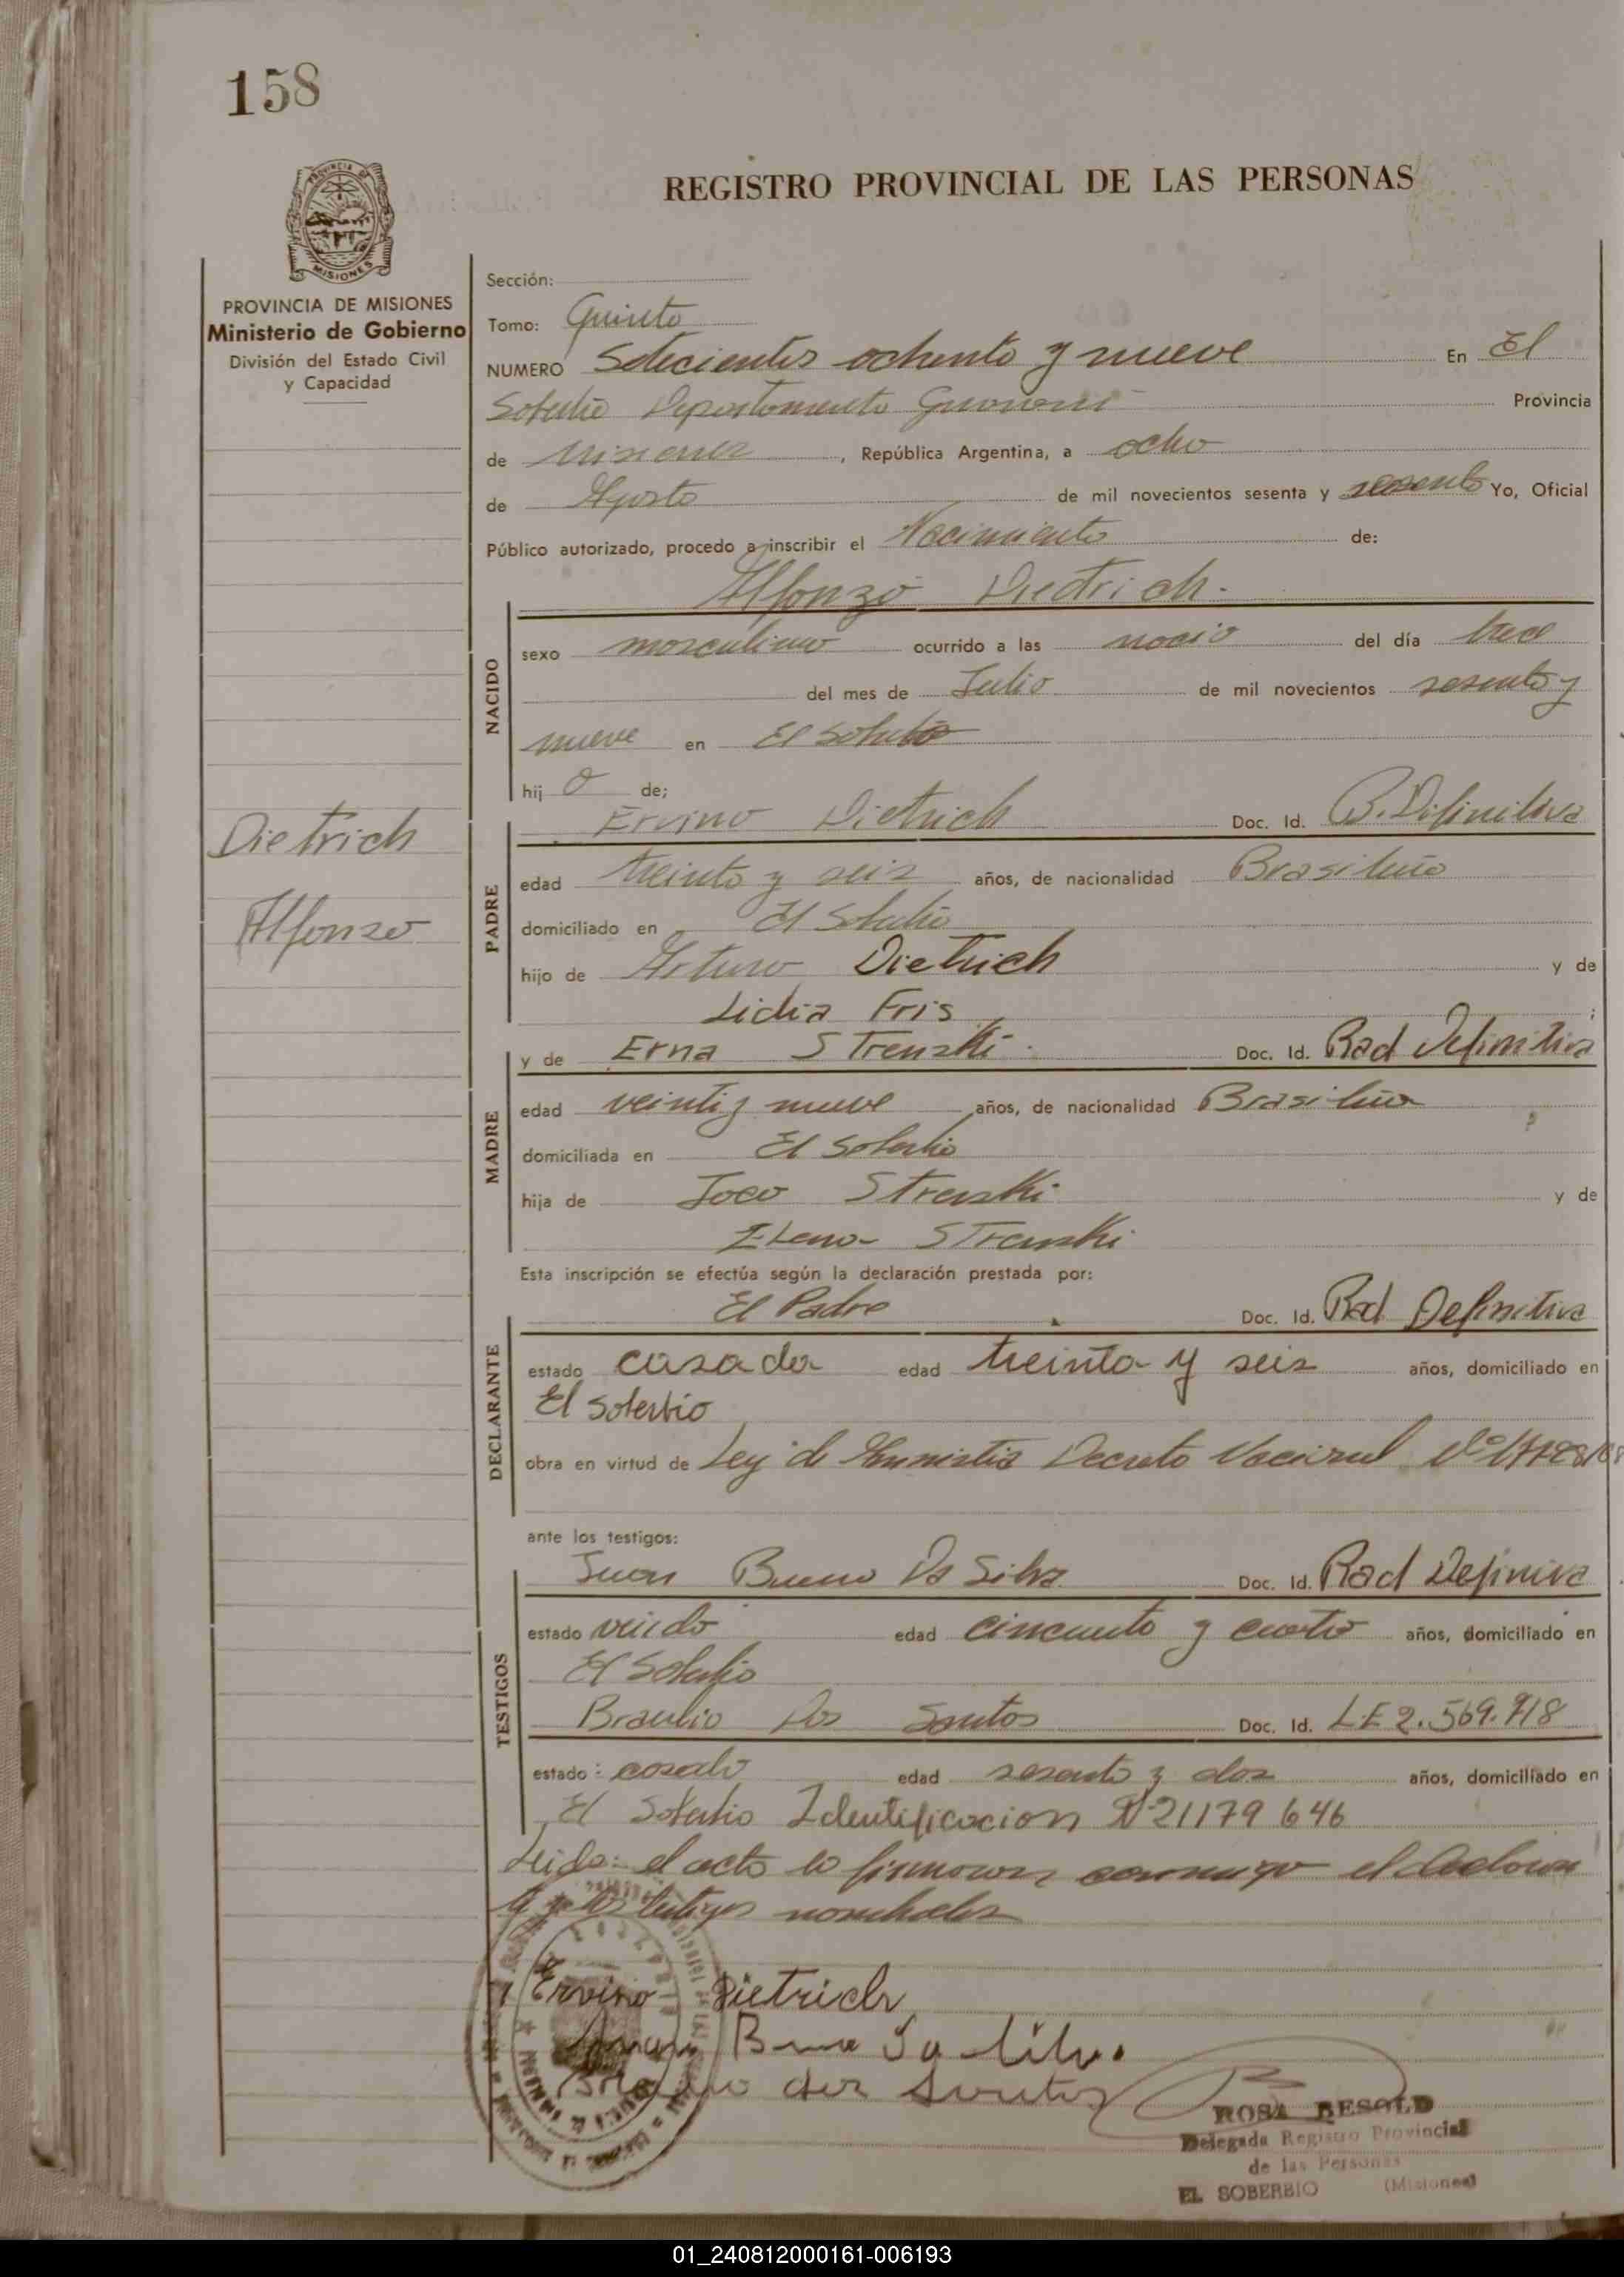 158
PROVINCIA DE MISIONES
REGISTRO PROVINCIAL DE LAS PERSONAS
PROVINCIA DE MISIONES
Ministerio de Gobierno
División del Estado Civil
y Capacidad
Dietrich
Alfonzo
Sección:
Tomo: Quinto
NUMERO Setecientos ochenta y nueve En El
Soberbio Departamento Guarani Provincia
de Misiones, República Argentina, a ocho
de Agosto de mil novecientos sesenta y Yo, Oficial
Público autorizado, procedo a inscribir el Nacimiento de:
Alfonzo Dietrich.
NACIDO
sexo masculino ocurrido a las del día trece
del mes de Julio de mil novecientos sesenta y
nueve en El Soberbio
hij o de;
PADRE
Ervino Dietrich Doc. Id. R. Difinitiva
edad treinta y seis años, de nacionalidad Brasileño
domiciliado en El Soberbio
hijo de Arturo Dietrich y de
Lidia Fris ;
MADRE
y de Erna Strenski. Doc. Id. Rad Definitiva
edad veinti y nueve años, de nacionalidad Brasileña
domiciliada en El Soberbio
hija de Joao Strenski y de
Elena Strenski
Esta inscripción se efectúa según la declaración prestada por:
DECLARANTE
El Padre Doc. Id. Rad Definitiva
estado casado edad treinta y seis años, domiciliado en
El Soberbio
obra en virtud de Ley de Amnistia Decreto Nacional Nº
ante los testigos:
TESTIGOS
Juan Bueno Da Silva Doc. Id. Rad Definiva
estado viudo edad cincuenta y cuatro años, domiciliado en
El Soberbio
Braulio Dos Santos Doc. Id. L.E 2.569.718
estado: casado edad sesenta y dos años, domiciliado en
El Soberbio Identificacion Nº 21179646
Leida: el acta la firmaron conmigo el declaran
te y los testigos nombrados
Ervino Dietrich
Juan Bueno Da Silva.
Braulio dos Santos
ROSA BESOLD
Delegada Registro Provincial
de las Personas
EL SOBERBIO (Misiones)
01_240812000161-006193